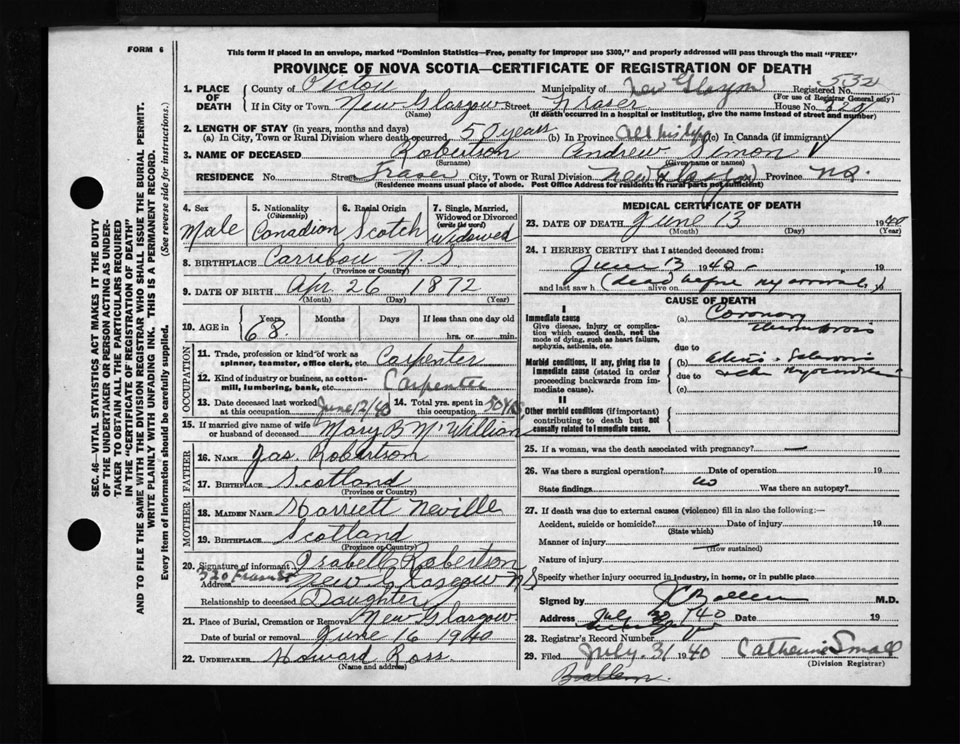 FORM 6
This form if placed in an envelope, marked "Dominion Statistics—Free, penalty for improper use $300," and properly addressed will pass through the mail "FREE"
PROVINCE OF NOVA SCOTIA—CERTIFICATE OF REGISTRATION OF DEATH
SEC. 46—VITAL STATISTICS ACT MAKES IT THE DUTY
OF THE UNDERTAKER OR PERSON ACTING AS UNDER-
TAKER TO OBTAIN ALL THE PARTICULARS REQUIRED
IN THE "CERTIFICATE OF REGISTRATION OF DEATH"
AND TO FILE THE SAME WITH THE DIVISION REGISTRAR WHO SHALL ISSUE THE BURIAL PERMIT.
WRITE PLAINLY WITH UNFADING INK. THIS IS A PERMANENT RECORD.
Every item of information should be carefully supplied. (See reverse side for instructions.)
1. PLACE OF DEATH
County of Pictou Municipality of New Glasgow Registered No. 532
(For use of Registrar General only)
If in City or Town New Glasgow Street Fraser House No.
(Name) (If death occurred in a hospital or institution, give the name instead of street and number)
2. LENGTH OF STAY (in years, months and days)
(a) In City, Town or Rural Division where death occurred 50 years (b) In Province All his life (c) In Canada (if immigrant)
3. NAME OF DECEASED Robertson Andrew Simon
(Surname) (Given name or names)
RESIDENCE No. Street Fraser City, Town or Rural Division New Glasgow Province N.S.
(Residence means usual place of abode. Post Office Address for residents in rural parts not sufficient)
4. Sex Male
5. Nationality (Citizenship) Canadian
6. Racial Origin Scotch
7. Single, Married, Widowed or Divorced (write the word) Widowed
8. BIRTHPLACE Carribou N.S
(Province or Country)
9. DATE OF BIRTH Apr 26 1872
(Month) (Day) (Year)
10. AGE in Years Months Days If less than one day old
68 hrs. or min.
OCCUPATION
11. Trade, profession or kind of work as spinner, teamster, office clerk, etc. Carpenter
12. Kind of industry or business, as cotton-mill, lumbering, bank, etc. Carpenter
13. Date deceased last worked at this occupation June 12/40 14. Total yrs. spent in this occupation 50 yrs.
15. If married give name of wife or husband of deceased Mary B McWilliam
FATHER
16. NAME Jas. Robertson
17. BIRTHPLACE Scotland
(Province or Country)
MOTHER
18. MAIDEN NAME Harriett Neville
19. BIRTHPLACE Scotland
(Province or Country)
20. Signature of informant Isabell Robertson
Address 320 Fraser St New Glasgow N S
Relationship to deceased Daughter
21. Place of Burial, Cremation or Removal New Glasgow
Date of burial or removal June 16 1940
22. UNDERTAKER Howard Ross.
(Name and address)
MEDICAL CERTIFICATE OF DEATH
23. DATE OF DEATH June 13 1940
(Month) (Day) (Year)
24. I HEREBY CERTIFY that I attended deceased from:
June 13 1940 19
and last saw h alive on (dead before my arrival) 19
CAUSE OF DEATH
I
Immediate cause
Give disease, injury or complication which caused death, not the mode of dying, such as heart failure, asphyxia, asthenia, etc.
(a) Coronary Thrombosis
due to
Morbid conditions, if any, giving rise to immediate cause (stated in order proceeding backwards from immediate cause).
(b)
due to
(c)
II
Other morbid conditions (if important) contributing to death but not causally related to immediate cause.
25. If a woman, was the death associated with pregnancy? —
26. Was there a surgical operation? Date of operation 19
State findings no Was there an autopsy?
27. If death was due to external causes (violence) fill in also the following:—
Accident, suicide or homicide? Date of injury 19
(State which)
Manner of injury
(How sustained)
Nature of injury
Specify whether injury occurred in industry, in home, or in public place
Signed by M.D.
Address Date 19
28. Registrar's Record Number
29. Filed July 31 1940 Catherine Small
(Division Registrar)